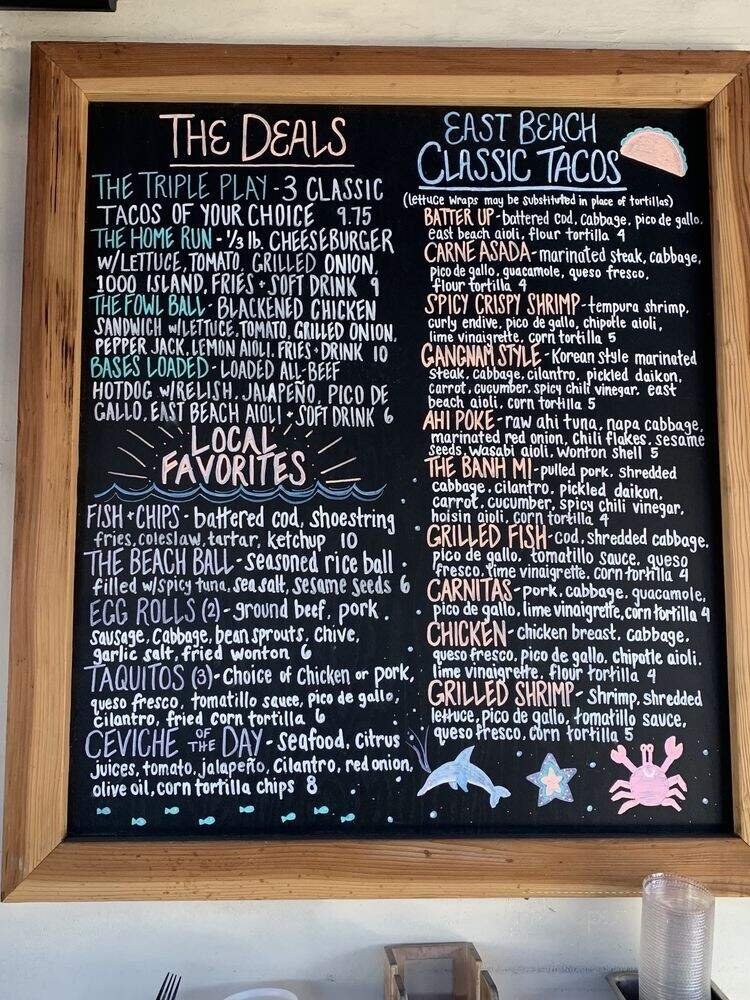 THE DEALS
THE TRIPLE PLAY - 3 CLASSIC
TACOS OF YOUR CHOICE 9.75
THE HOME RUN - 1/3 lb. CHEESEBURGER
W/LETTUCE, TOMATO, GRILLED ONION,
1000 ISLAND, FRIES + SOFT DRINK 9
THE FOWL BALL - BLACKENED CHICKEN
SANDWICH W/LETTUCE, TOMATO, GRILLED ONION,
PEPPER JACK, LEMON AIOLI, FRIES + DRINK 10
BASES LOADED - LOADED ALL-BEEF
HOTDOG W/RELISH, JALAPEÑO, PICO DE
GALLO, EAST BEACH AIOLI + SOFT DRINK 6
LOCAL
FAVORITES
FISH + CHIPS - battered cod, shoestring
fries, coleslaw, tartar, ketchup 10
THE BEACH BALL - seasoned rice ball
filled w/spicy tuna, sea salt, sesame seeds 6
EGG ROLLS (2) - ground beef, pork,
sausage, cabbage, bean sprouts, chive,
garlic salt, fried wonton 6
TAQUITOS (3) - Choice of Chicken or pork,
queso fresco, tomatillo sauce, pico de gallo,
cilantro, fried corn tortilla 6
CEVICHE OF THE DAY - Seafood, Citrus
juices, tomato, jalapeño, Cilantro, red onion,
olive oil, corn tortilla chips 8
EAST BEACH
CLASSIC TACOS
(lettuce wraps may be substituted in place of tortillas)
BATTER UP - battered cod, cabbage, pico de gallo,
east beach aioli, flour tortilla 4
CARNE ASADA - marinated steak, cabbage,
pico de gallo, guacamole, queso fresco,
flour tortilla 4
SPICY CRISPY SHRIMP - tempura shrimp,
curly endive, pico de gallo, chipotle aioli,
lime vinaigrette, corn tortilla 5
GANGNAM STYLE - Korean style marinated
steak, cabbage, cilantro, pickled daikon,
carrot, cucumber, spicy chili vinegar, east
beach aioli, corn tortilla 5
AHI POKE - raw ahi tuna, napa cabbage,
marinated red onion, chili flakes, sesame
seeds, wasabi aioli, wonton shell 5
THE BANH MI - pulled pork, shredded
cabbage, cilantro, pickled daikon,
carrot, cucumber, spicy chili vinegar,
hoisin aioli, corn tortilla 4
GRILLED FISH - cod, shredded cabbage,
pico de gallo, tomatillo sauce, queso
fresco, lime vinaigrette, corn tortilla 4
CARNITAS - pork, cabbage, guacamole,
pico de gallo, lime vinaigrette, corn tortilla 4
CHICKEN - chicken breast, cabbage,
queso fresco, pico de gallo, chipotle aioli,
lime vinaigrette, flour tortilla 4
GRILLED SHRIMP - shrimp, shredded
lettuce, pico de gallo, tomatillo sauce,
queso fresco, corn tortilla 5